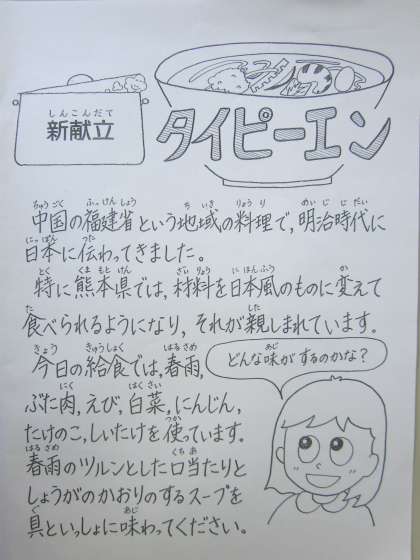 しんこんだて
新献立
タイピーエン
ちゅうごく ふっけんしょう ちいき りょうり めいじじだい
中国の福建省という地域の料理で,明治時代に
にっぽん つた
日本に伝わってきました。
とく くまもとけん ざいりょう にほんふう か
特に熊本県では,材料を日本風のものに変えて
た した
食べられるようになり,それが親しまれています。
きょう きゅうしょく はるさめ
今日の給食では,春雨,
にく はくさい
ぶた肉,えび,白菜,にんじん,
つか
たけのこ,しいたけを使っています。
はるさめ くちあ
春雨のツルンとした口当たりと
しょうがのかおりのするスープを
ぐ あじ
具といっしょに味わってください。
あじ
どんな味がするのかな?